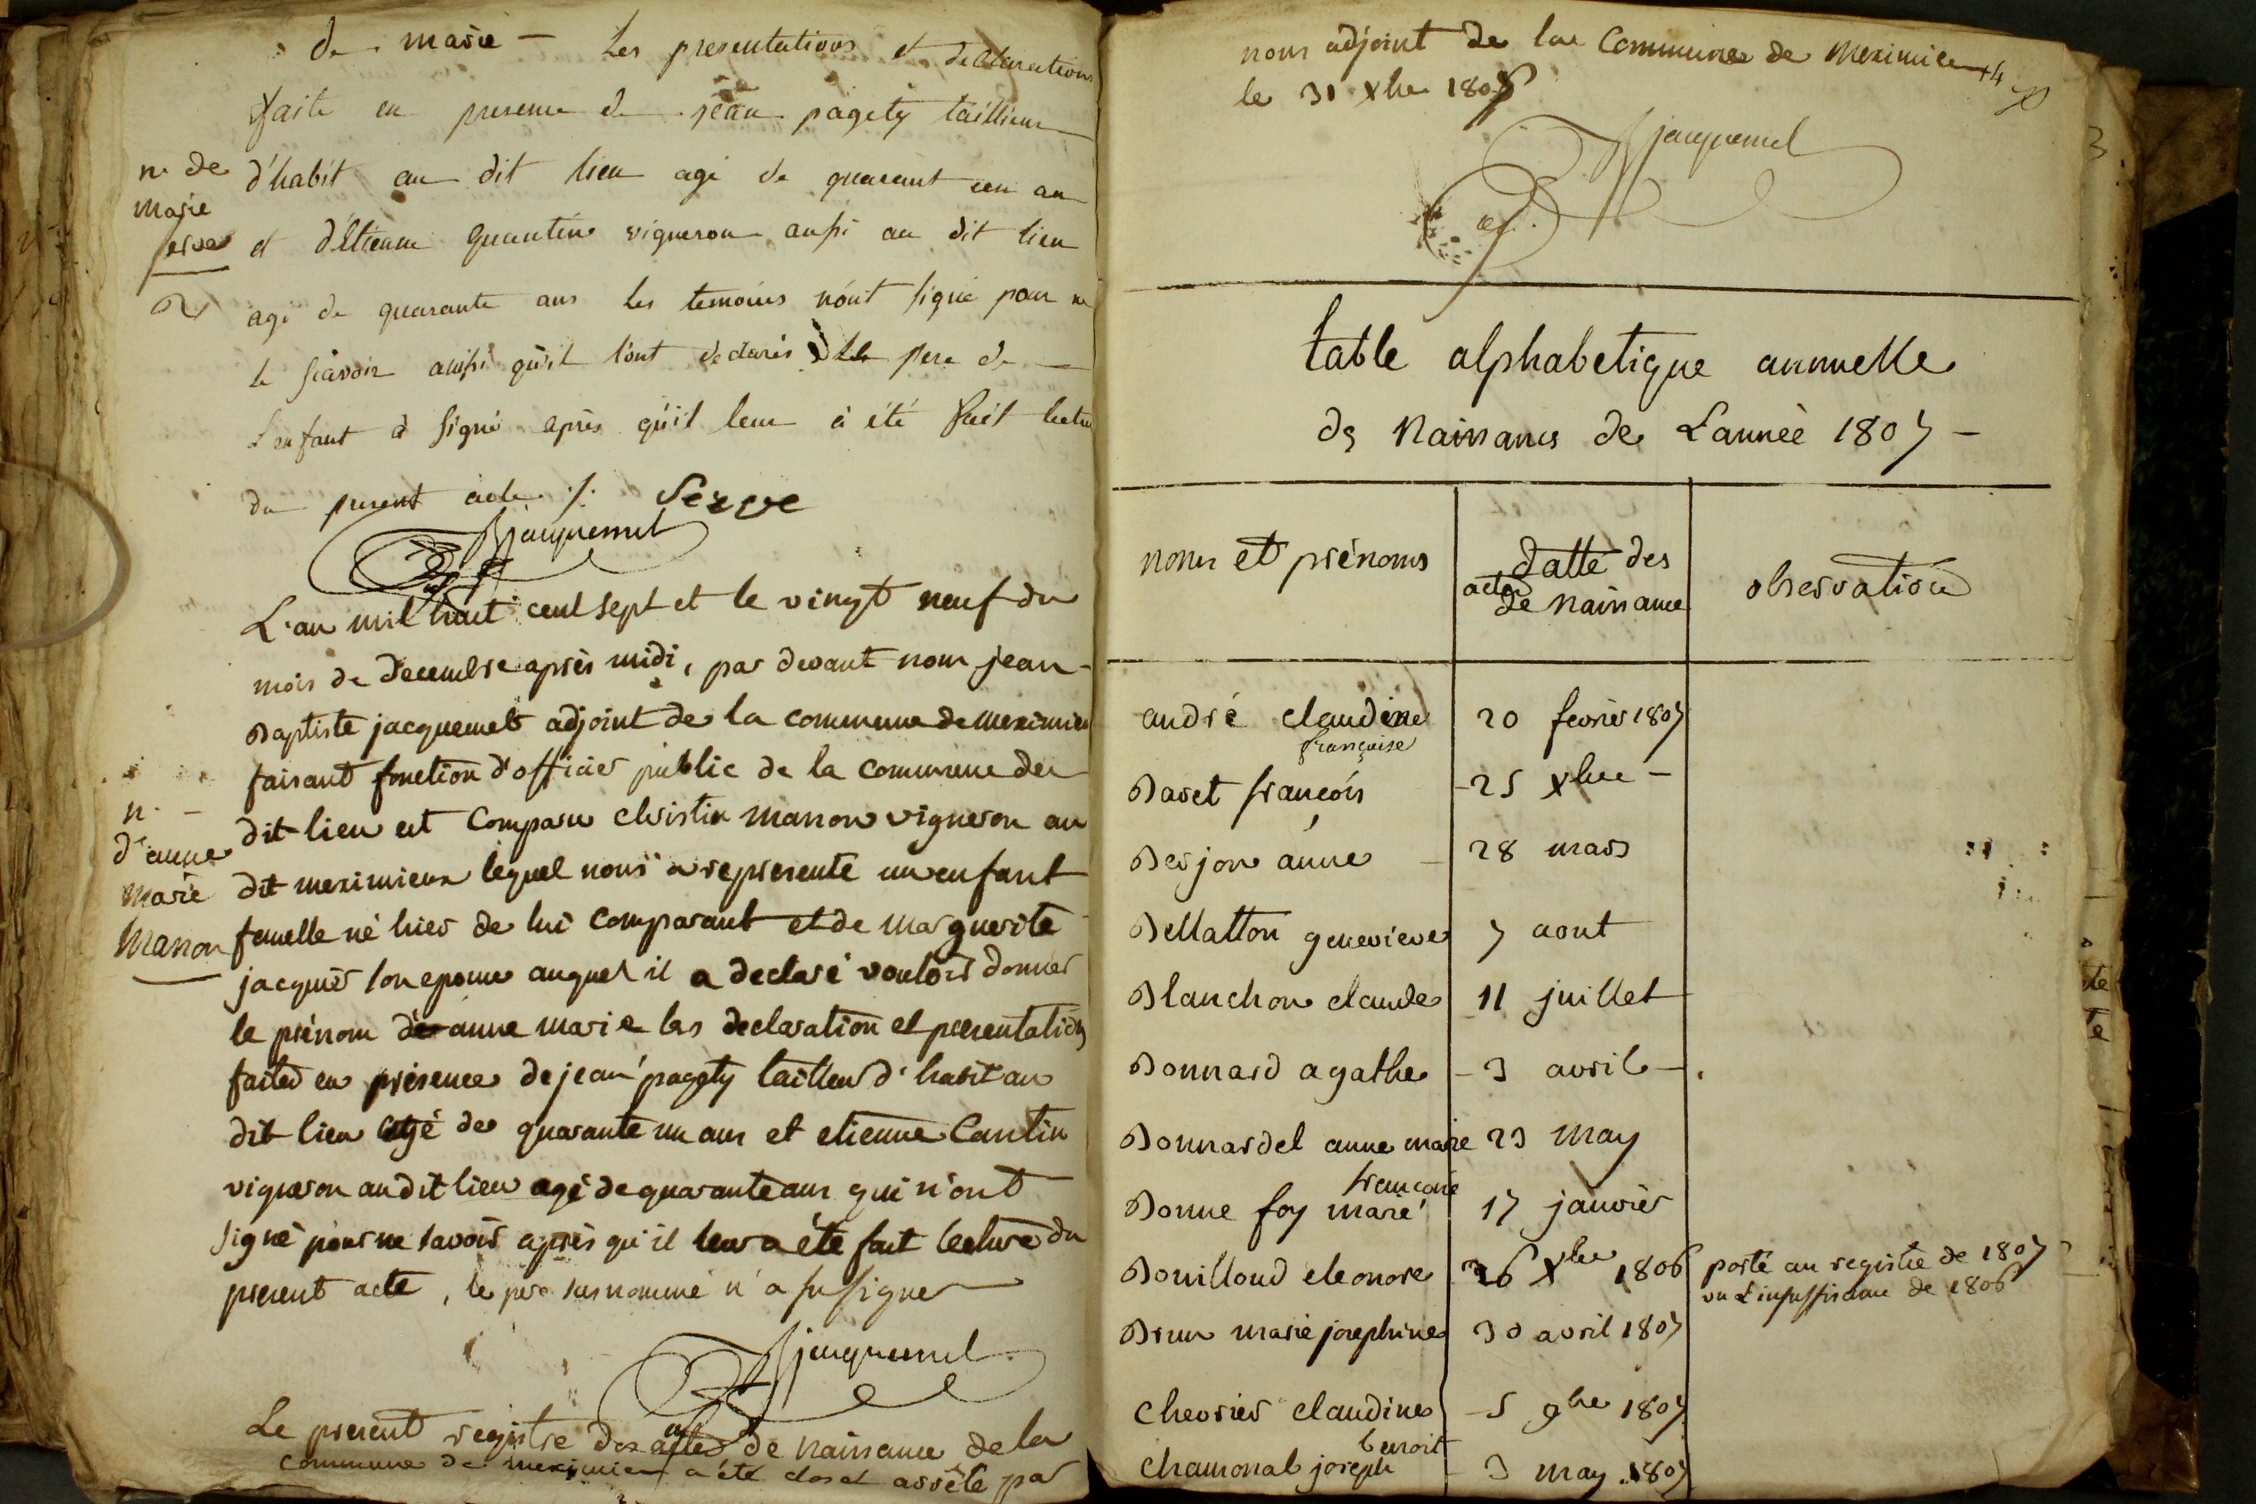 de marie – Les presentations et declarations
faite en presence de jean pagety taillieur
d'habit au dit lieu agé de quarant un an
et d'étienne quantin vigneron aussi au dit lieu
agé de quarante ans les temoins n'ont signé pour ne
le sçavoir ainsi qu'il l'ont declarés Le pere de
L'enfant à signé après qu'il leur à été fait lectu
du present acte ./. Serve
jacquemet
n. de
marie
serve
L'an mil huit cent sept et le vingt neuf du
mois de decembre après midi, par devant nous jean
Baptiste jacquemet adjoint de la commune de meximieu
faisant fonction d'officier public de la commune du
dit lieu est comparu christin manon vigneron au
dit meximieux lequel nous a representé un enfant
femelle né hier de lui comparant et de marguerite
jacquier son epouse auquel il a declaré vouloir donner
le prénom de anne marie les declaration et presentation
faites en présence de jean pagety tailleur d'habit au
dit lieu agé de quarante un ans et etienne Cantin
vigneron au dit lieu agé de quarante ans qui n'ont
signé pour ne savoir après qu'il leur a été fait lecture du
present acte, le pere susnommé n'a su signer
jacquemet
n. –
d'anne
marie
manon
Le present registre des actes de naissance de la
commune de meximieu a été clos et arrêté par
nous adjoint de la Commune de meximieu
le 31 xbre 1807
jacquemet
table alphabetique annuelle
des Naissances de L'année 1807 –
noms et prénoms | datte des actes de naissance | observation
andré claudine françoise | 20 fevrier 1807
Baret françois | 25 xbre –
Berjon anne | 28 mars
Bellatton genevieve | 7 aout
Blanchon claude | 11 juillet
Bonnard agathe | 3 avril –
Bonnardel anne marie | 23 may
Bonne foy marie françoise | 17 janvier
Bouilloud eleonore | 26 xbre 1806 | porté au registre de 1807
vu L'insuffisance de 1806
Brun marie josephine | 30 avril 1807
Chevrier claudine | 5 9bre 1807
Chamonal joseph benoit | 3 may 1807